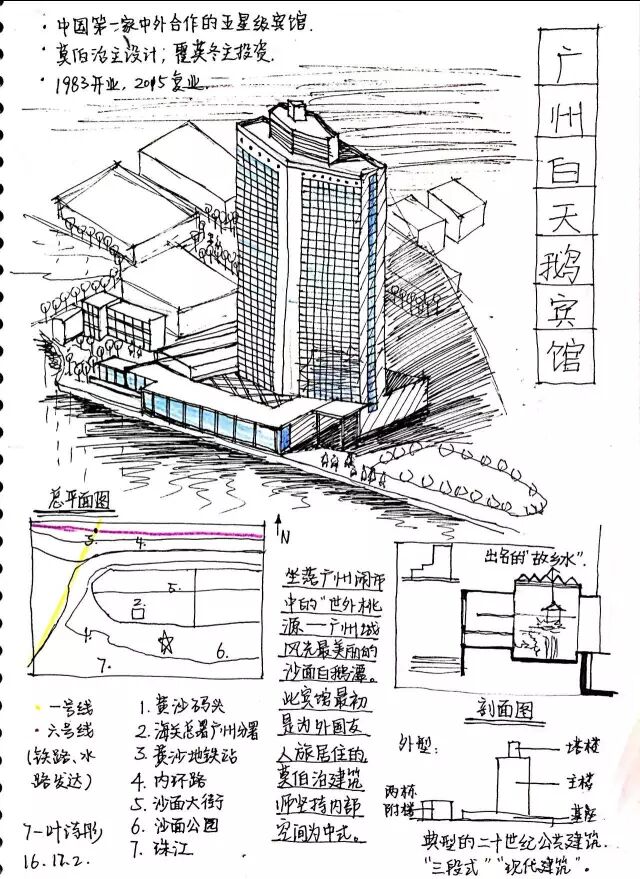 ·中国第一家中外合作的五星级宾馆.
·莫伯治主设计；霍英东主投资.
·1983开业，2015复业.
广州白天鹅宾馆
总平面图
N
3.
4.
5.
2.
1.
6.
7.
·一号线
·六号线
(铁路、水
路发达)
1. 黄沙码头
2. 海关总署广州分署
3. 黄沙地铁站
4. 内环路
5. 沙面大街
6. 沙面公园
7. 珠江
16.12.2.
坐落广州闹市
中的"世外桃
源——广州城
风光最美丽的
沙面白鹅潭。
此宾馆最初
是为外国友
人旅居住的,
莫伯治建筑
师坚持内部
空间为中式。
出名的"故乡水".
剖面图
外型:
塔楼
主楼
两栋
附楼
基座
典型的二十世纪公共建筑.
"三段式""现代建筑"。